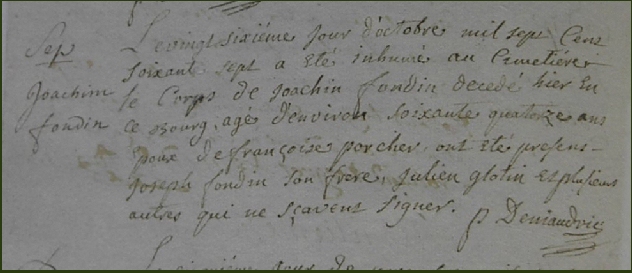 Sep
Joachim
fondin
Le vingt sixiéme jour d'octobre mil sept Cens
soixante sept a eté inhumé au Cemetierer
le Corps de joachin fondin decedé hier En
ce Bourg, agé d'environ soixante quatorze ans
Epoux de françoise porcher, ont eté presens
joseph fondin son frere, julien glotin et plusieurs
autres qui ne sçavent signer. p Deniaud vic